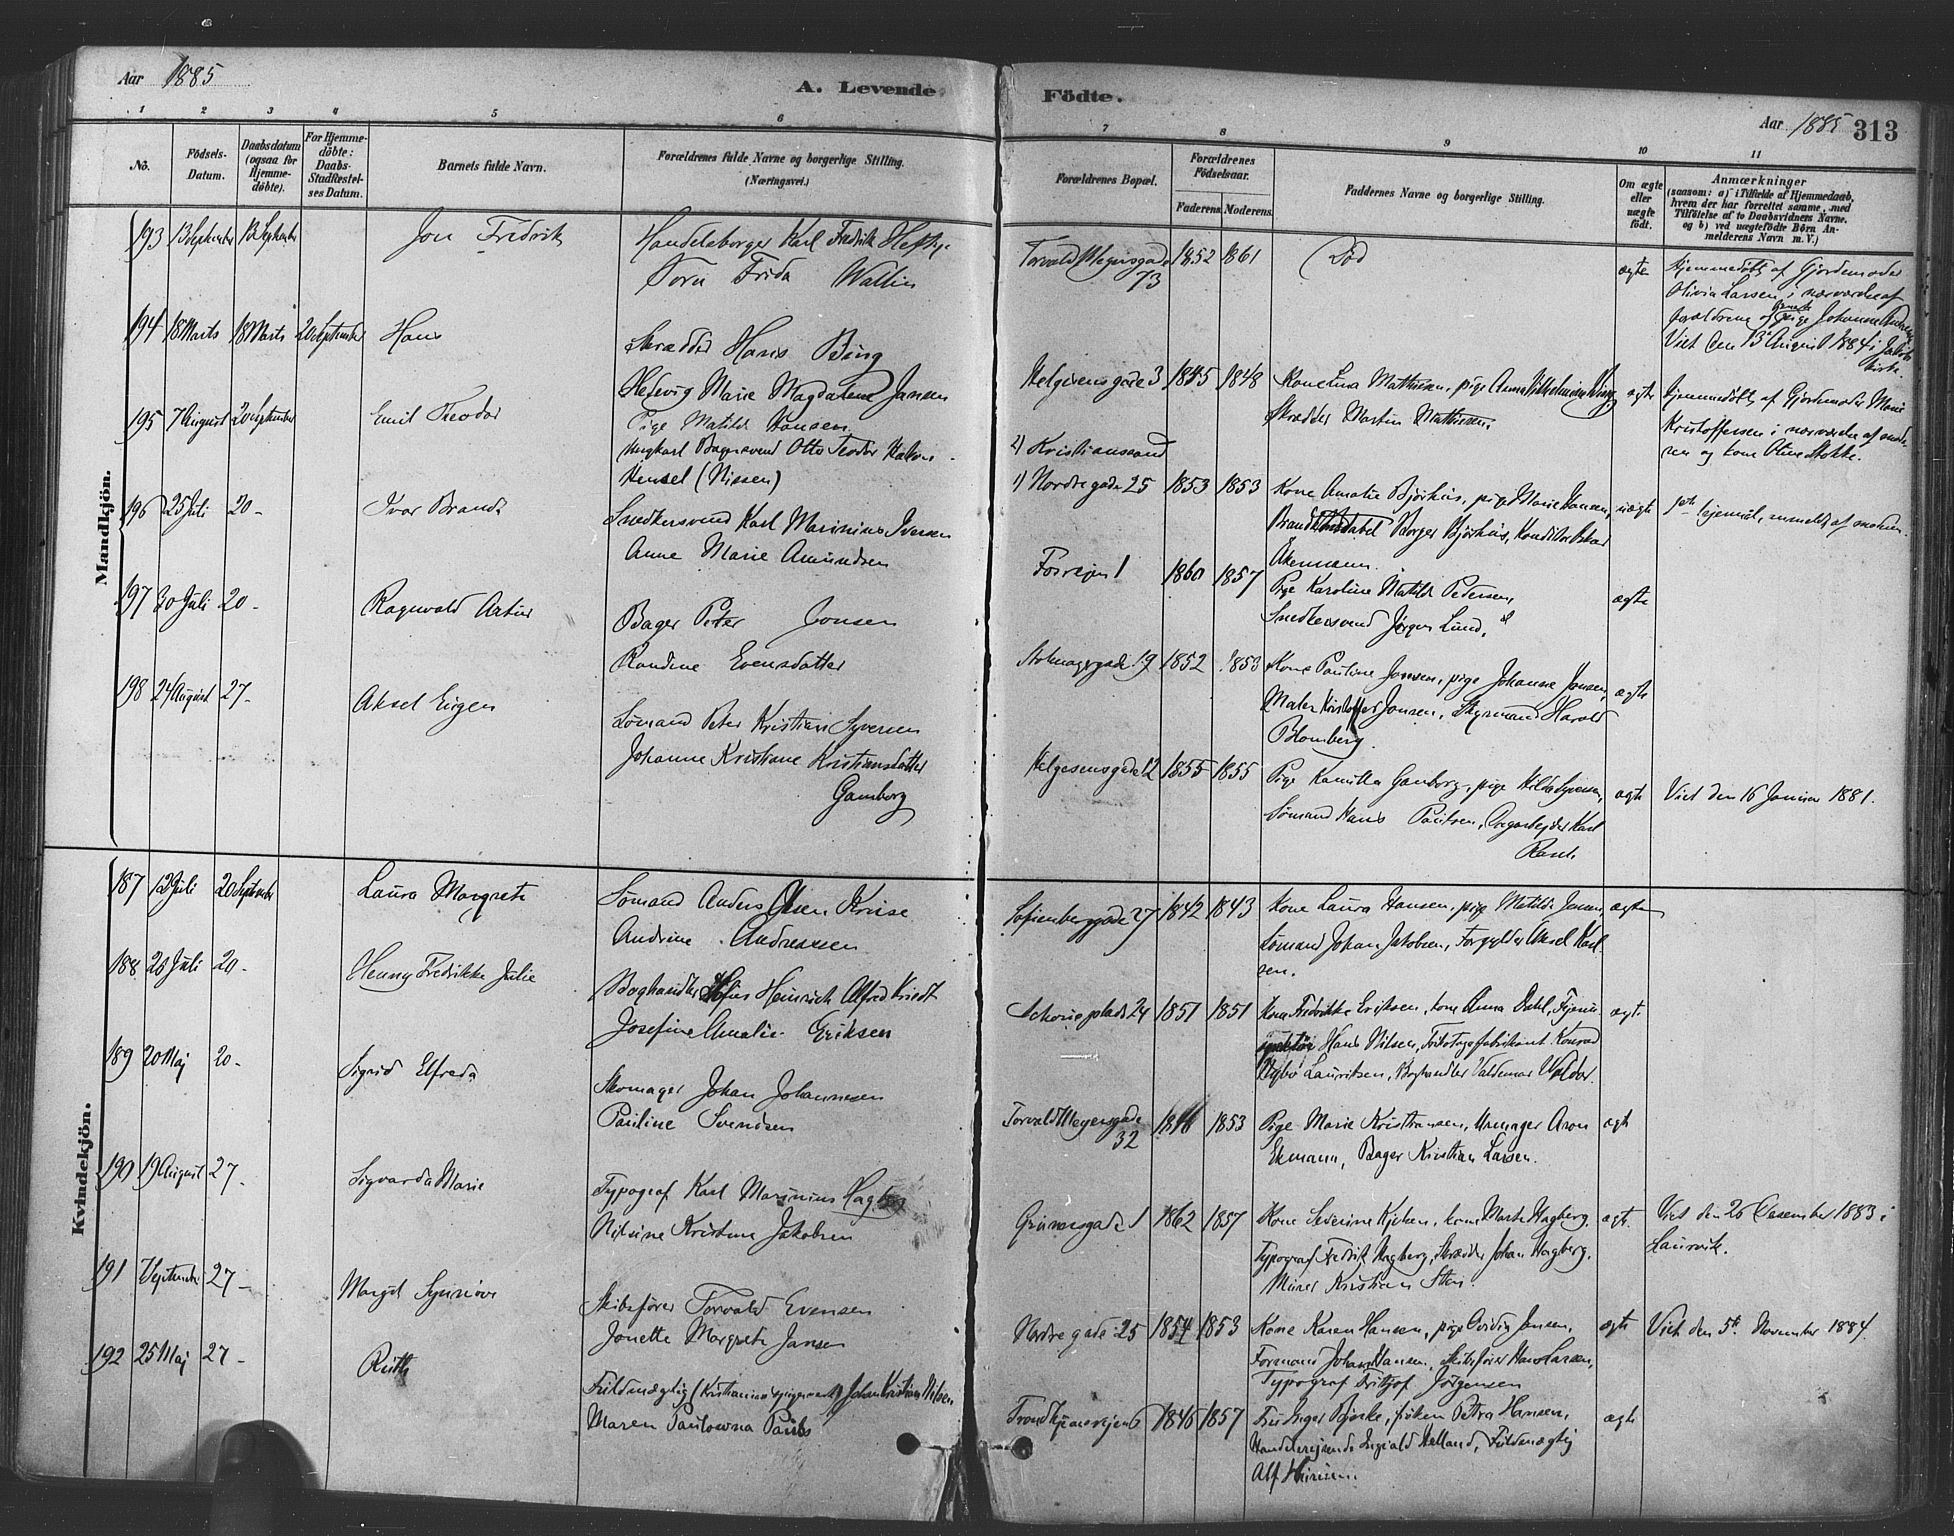 Aar 1885
A. Levende
1 2 3 4 5 6
No.
Födsels-Datum.
Daabsdatum (ogsaa for Hjemmedöbte).
For Hjemmedöbte: Daabs-Stadfæstelses Datum.
Barnets fulde Navn.
Forældrenes fulde Navne og borgerlige Stilling. (Næringsvei.)
Mandkjön.
193 13 September 13 September Jon Fredrik Handelsborger Karl Fredrik Heftye
Frida Wallin
194 18 Marts 18 Marts 20 September Hans Skrædder Hans Bing
Hedevig Marie Magdalene Jansen
195 7 August 20 September Emil Teodor Pige Matilde Hansen
Ungkarl Bagersvend Otto Teodor
Hensel (Nissen)
196 25 Juli 20 - Ivar Brande Snedkersvend Karl Marinius Iversen
Anne Marie Amundsen
197 30 Juli 20 - Ragnvald Artur Bager Peter Jonsen
Randine Evensdatter
198 24 August 27 - Aksel Eugen Sömand Peter Kristian Syversen
Johanne Kristiane Kristiansdatter
Gamborg
Kvindekjön.
187 12 Juli 20 September Laura Margrete Sömand Anders Olsen Kruse
Andrine Andreassen
188 20 Juli 20 - Henny Fredrikke Julie Boghandler Heinrich Alfred Kriedt
Josefine Amalie Eriksen
189 20 Maj 20 - Sigrid Elfreda Skomager Johan Johannesen
Pauline Svendsen
190 19 August 27 - Sigvarda Marie Typograf Karl Marinius Hagberg
Nilsine Kristine Jakobsen
191 7 September 27 - Margit Synnöve Skibsförer Torvald Evensen
Jonette Margrete Jansen
192 25 Maj 27 - Ruth Fuldmægtig Johan Kristian Nilsen
Maren Paulowna Pauls
Födte.
Aar 1885 313
7 8 9 10 11
Forældrenes Bopæl.
Forældrenes Födselsaar.
Faderens. Moderens.
Faddernes Navne og borgerlige Stilling.
Om ægte eller uægte födt.
Anmærkninger
(saasom: a) i Tilfælde af Hjemmedaab, hvem der har forrettet samme, med Tilföielse af to Daabsvidners Navne. og b) ved uægtefödte Börn Anmelderens Navn m. V.)
Torvald Meyersgade 73 1852 1861 Död ægte Hjemmedöbt af Gjordemoder
Olivia Larsen i nærværelse af
forældrene og pige Johanne
Viet den 13 August 1884 i Jakobs
kirke.
Helgesensgade 3 1845 1848 Kone Lina Mathisen, pige Anna Vilhelmine Bing, ægte Hjemmedöbt af Gjordemoder Marie
Skrædder Martin Mathisen. Kristoffersen i nærværelse af moderen og kone Oline Stokke.
2) Kristianssand
1) Nordregade 25 1853 1853 Kone Amalie Björhus, pige Marie Hansen, uægte anmeldt af moderen.
Brandkonstabel Börger Björhus, Konditor Oskar
Akermann.
1 1860 1857 Pige Karoline Matilde Pedersen, ægte
Snedkersvend Jörgen Lund.
19 1852 1853 Kone Pauline Jonsen, pige Johanne Jonsen, ægte
Maler Kristoffer Jonsen, Styrmand Harald
Blomberg.
Helgesensgade 12 1855 1855 Pige Kamilla Gamborg, pige Hilda Syversen, ægte Viet den 16 Januar 1881.
Sömand Hans Paulsen, Karl
Sofienberggade 27 1842 1843 Kone Laura Hansen, pige Matilde Jensen, ægte
Sömand Johan Jakobsen, Forgylder Aksel Karlsen.
Schousplads 24 1851 1851 Kone Fredrikke Eriksen, kone Anna Dahl, ægte
Hans Nilsen, Konrad
Lauritsen, Boghandler Valdemar
Torvald Meyersgade 32 1853 Pige Marie Kristiansen, Urmager Aron ægte
Ekmann, Bager Kristian Larsen.
Grünersgade 1 1862 1857 Kone Severine Kjelsen, kone Marte Hagberg, ægte Viet den 26 Desember 1883 i
Laurvik.
Typograf Fredrik Hagberg, Skrædder Johan Hagberg,
Murer Kristian
Nordregade 25 1854 1853 Kone Karen Hansen, pige Ovidia Jensen, ægte Viet den 5te November 1884.
Formand Johan Hansen, Skibsförer Hans Larsen,
Typograf Fritjof Jörgensen
Trondhjemsvejen 6 1846 1857 Fru Inger Bjerke, fröken Petra Hansen, ægte
Handelsrejsende Helland, Fuldmægtig
Alf